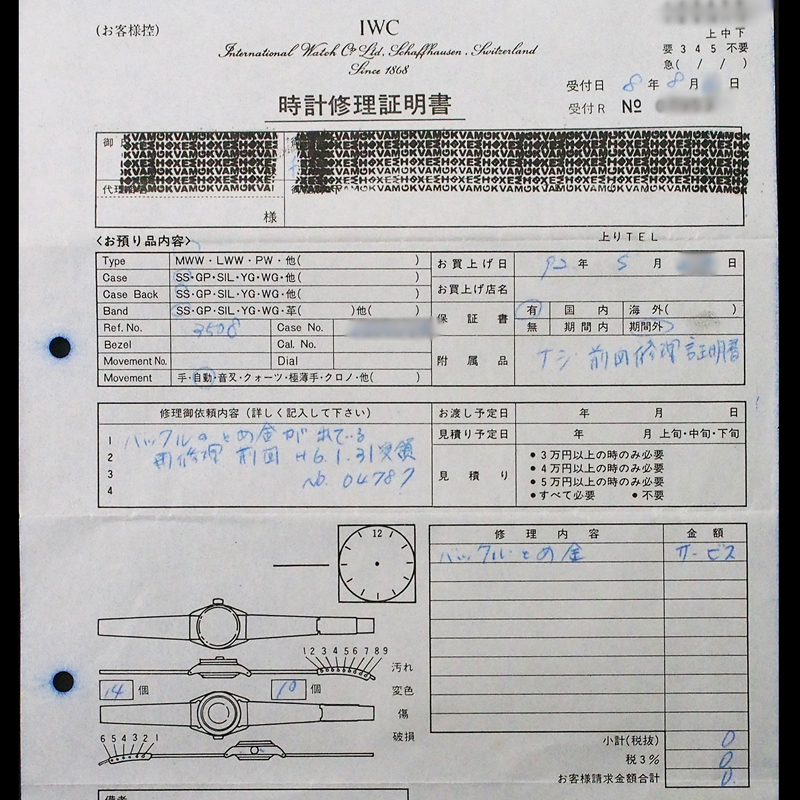 (お客様控)
IWC
International Watch Co Ltd, Schaffhausen, Switzerland
Since 1868
上中下
要 3 4 5 不要
急( / / )
受付日 8年 8月 日
時計修理証明書
受付R No
御
代理
様
上りTEL
<お預り品内容>
Type MWW・LWW・PW・他( )
Case SS・GP・SIL・YG・WG・他( )
Case Back SS・GP・SIL・YG・WG・他( )
Band SS・GP・SIL・YG・WG・革( )他( )
Ref. No. 3508 Case No.
Bezel Cal. No.
Movement No. Dial
Movement 手・自動・音叉・クォーツ・極薄手・クロノ・他( )
お買上げ日 92年 5月 日
お買上げ店名
保証書 有 国内 海外( )
無 期間内 期間外
附属品 ナシ 前回修理証明書
修理御依頼内容(詳しく記入して下さい)
1 バックルのとめ金が出ている
2 再修理 前回 H6.1.31受領
3 No. 04787
4
お渡し予定日 年 月 日
見積り予定日 年 月 上旬・中旬・下旬
見積り
●3万円以上の時のみ必要
●4万円以上の時のみ必要
●5万円以上の時のみ必要
●すべて必要 ●不要
修理内容 金額
バックルとめ金 サービス
12
1 2 3 4 5 6 7 8 9
汚れ
14個 10個
変色
傷
破損
6 5 4 3 2 1
小計(税抜) 0
税3% 0
お客様請求金額合計 0
備考